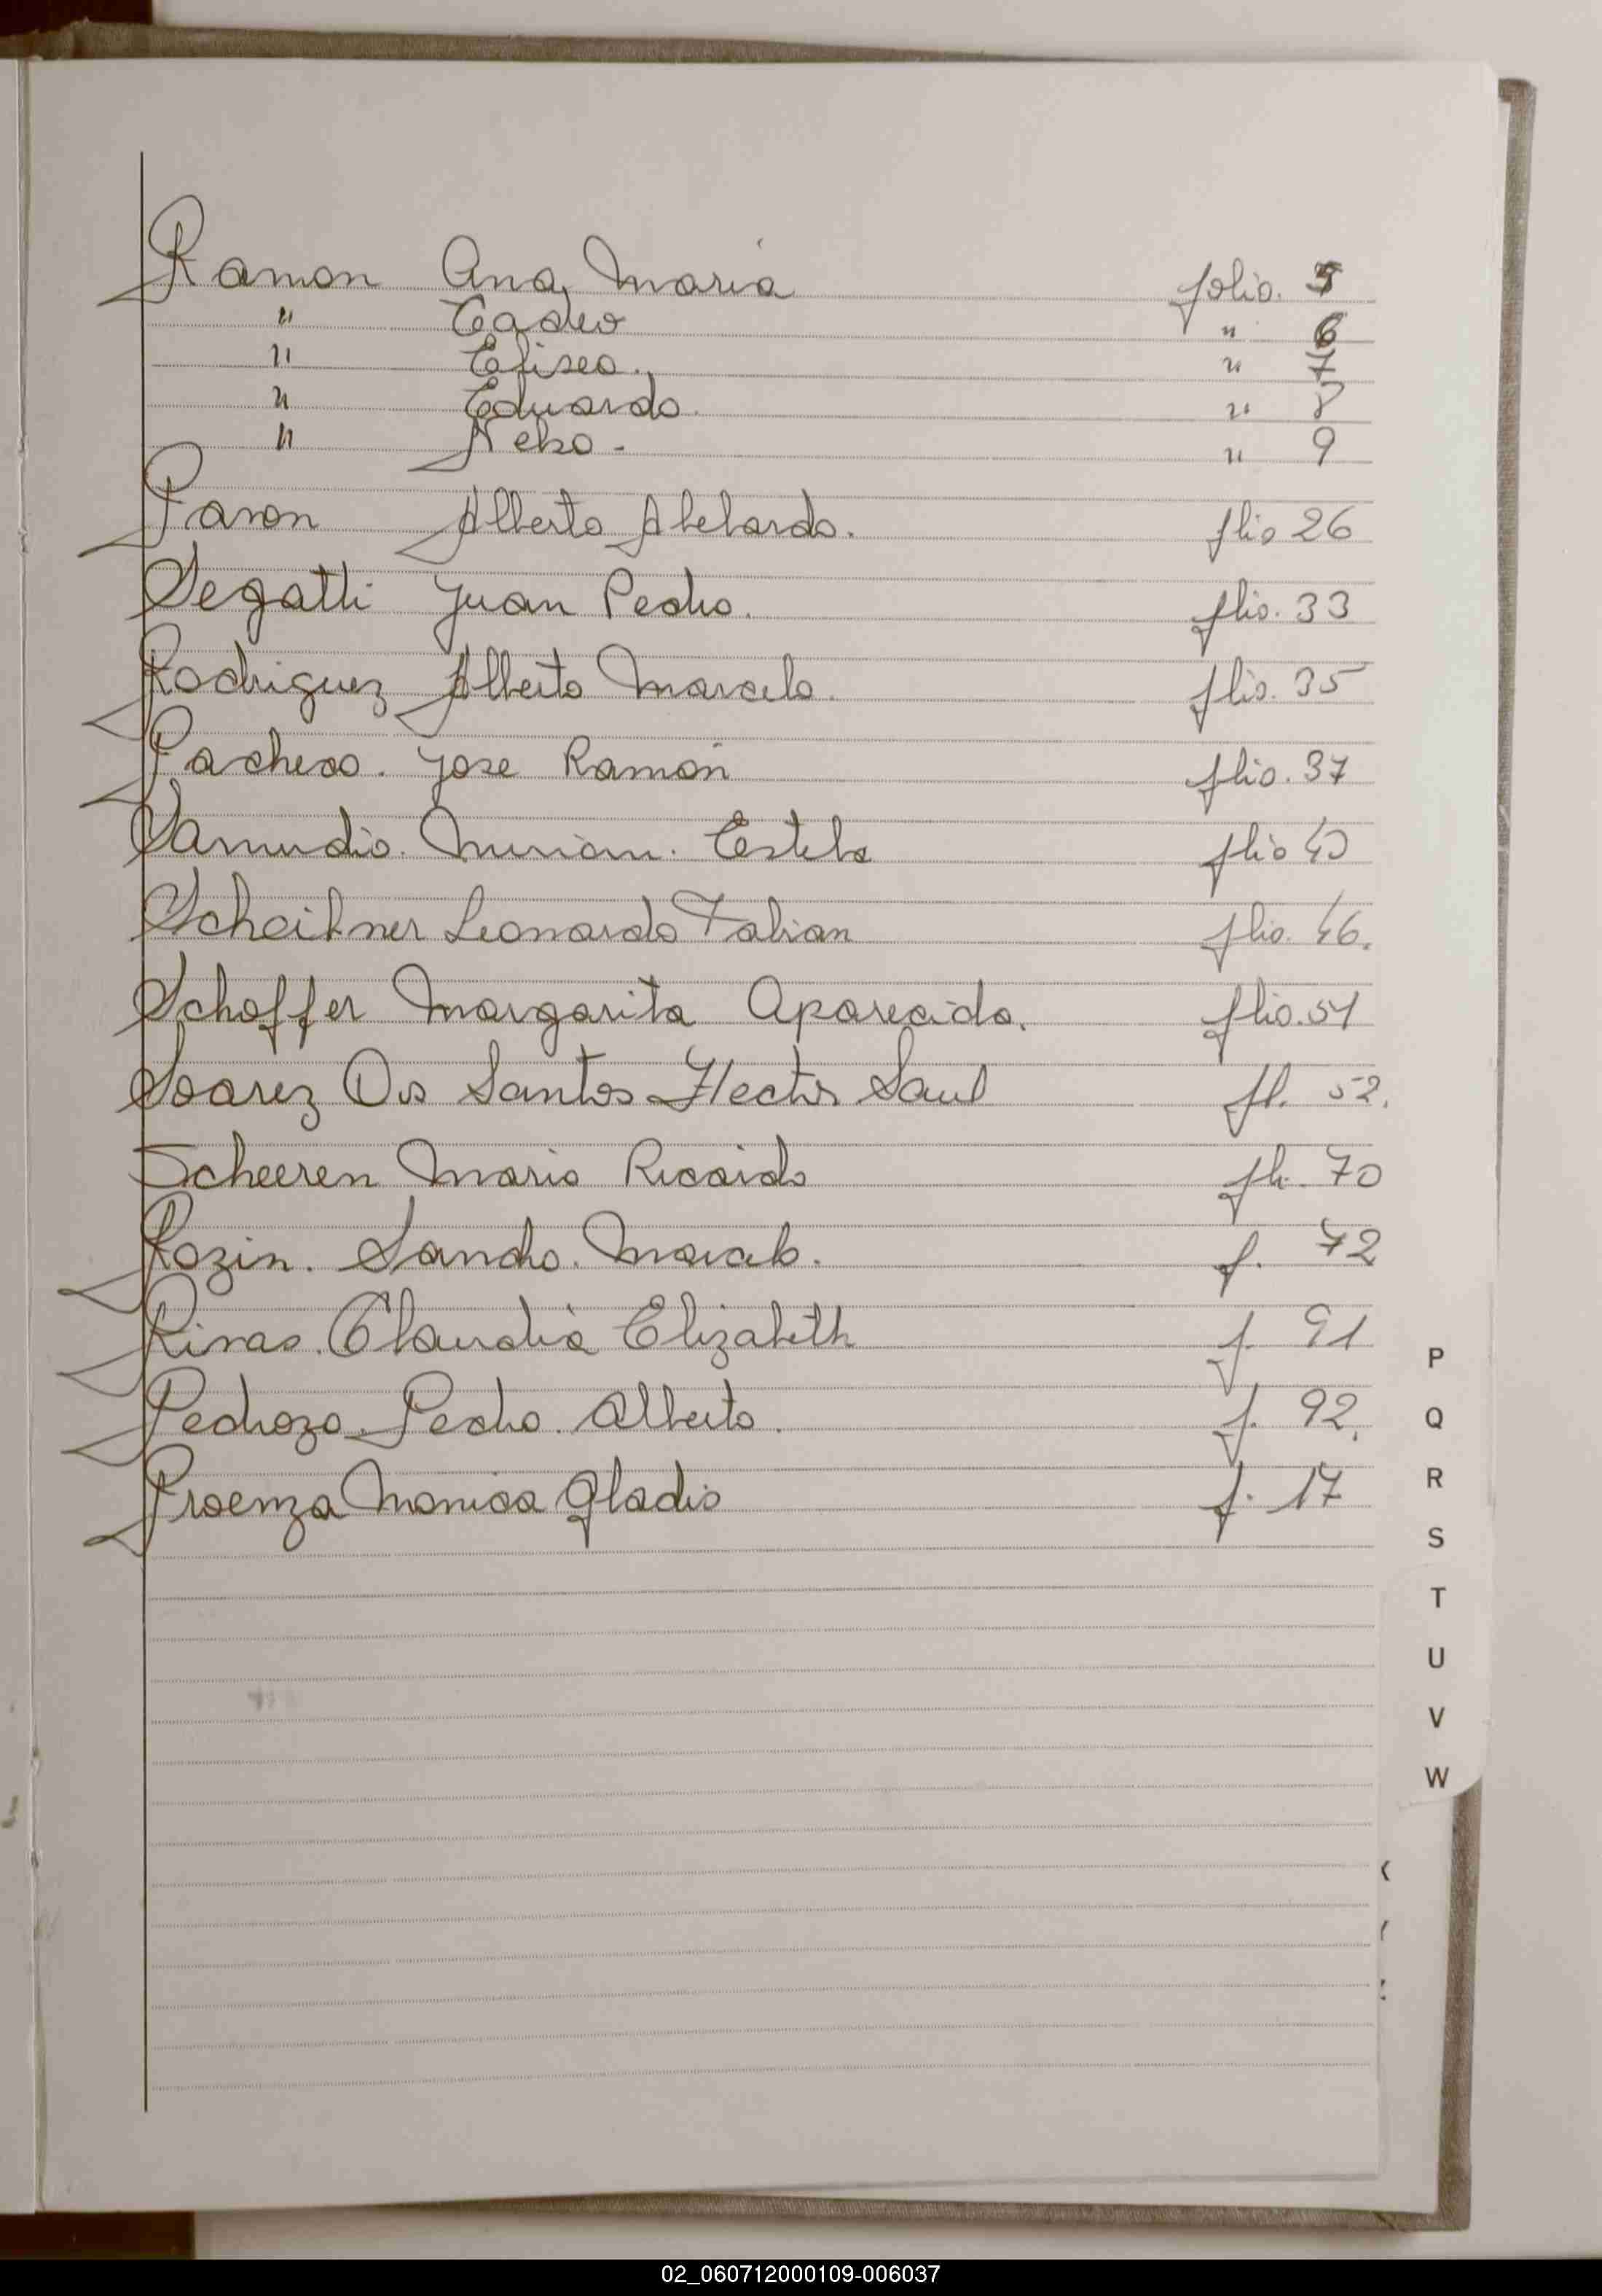 Ramon Ana Maria folio. 5
" Tadeo " 6
" Eliseo. " 7
" Eduardo. " 8
" Nelso. " 9
Pavon Alberto Abelardo. flio 26
Segatti Juan Pedro. flio. 33
Rodriguez Alberto Marcelo. flio. 35
Pacheco. Jose Ramón flio. 37
Samudio. Miriam. Estela flio
Scheibner Leonardo Fabian flio. 46.
Schoffer Margarita Aparecida. flio. 51
Soarez Dos Santos Hector Saul fl. 52.
Scheeren Mario Ricardo fli. 70
Rozin. Sandro. Marcelo. f. 72
Rivas. Claudia Elizabeth f. 91
Pedrozo. Pedro. Alberto. f. 92.
Proenza Monica Gladis f. 17
P
Q
R
S
T
U
V
W
02_060712000109-006037